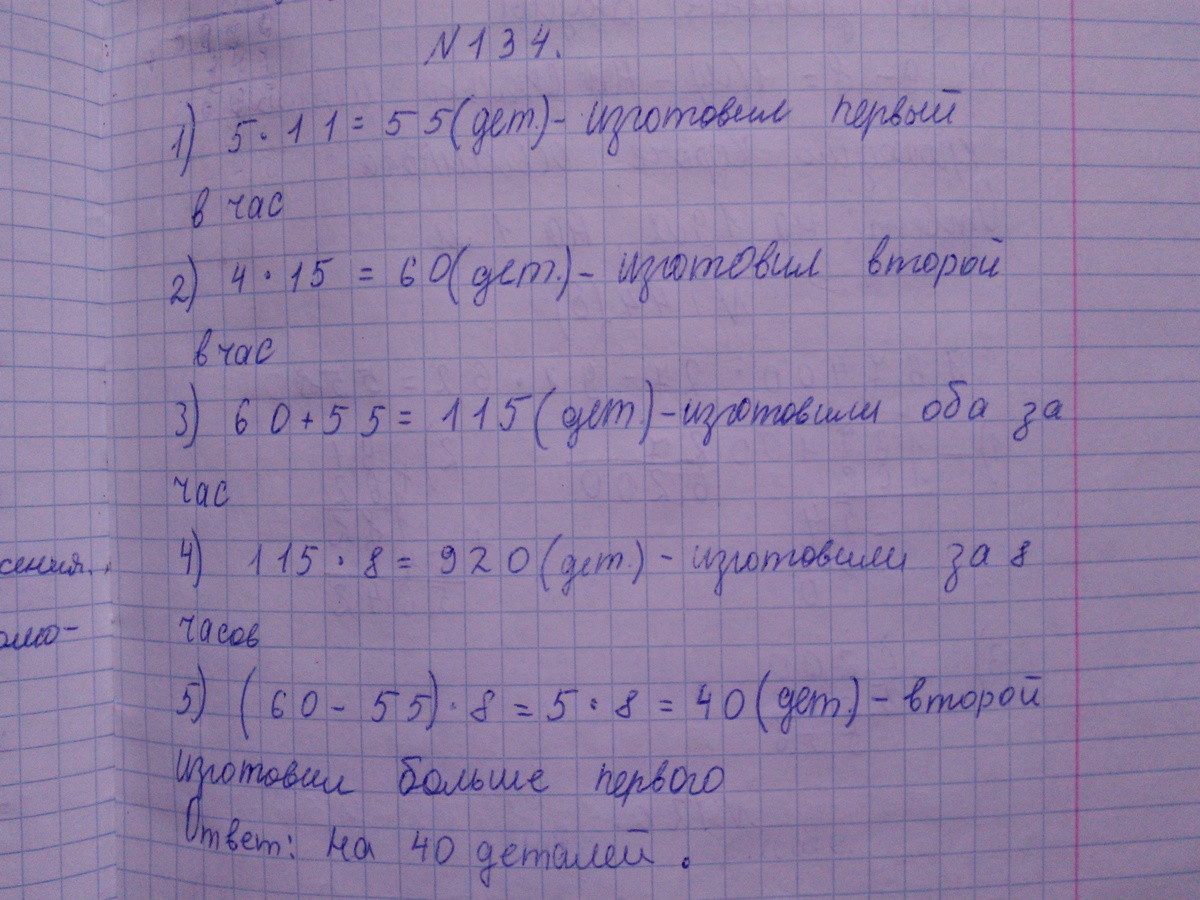 N134.
1) 5·11=55(дет)- изготовил первый
в час
2) 4·15=60(дет.)- изготовил второй
в час
3) 60+55=115(дет)-изготовили оба за
час
4) 115·8=920(дет.)-изготовили за 8
сения.
часов
5) (60-55)·8=5·8=40(дет.)-второй
изготовил больше первого
Ответ: на 40 деталей.